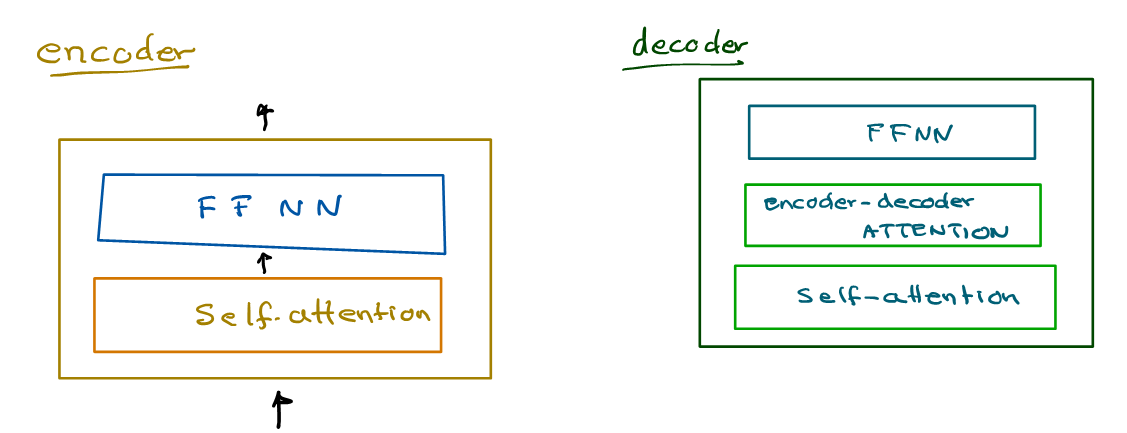 encoder
FF NN
Self-attention
decoder
FFNN
encoder-decoder
ATTENTION
Self-attention